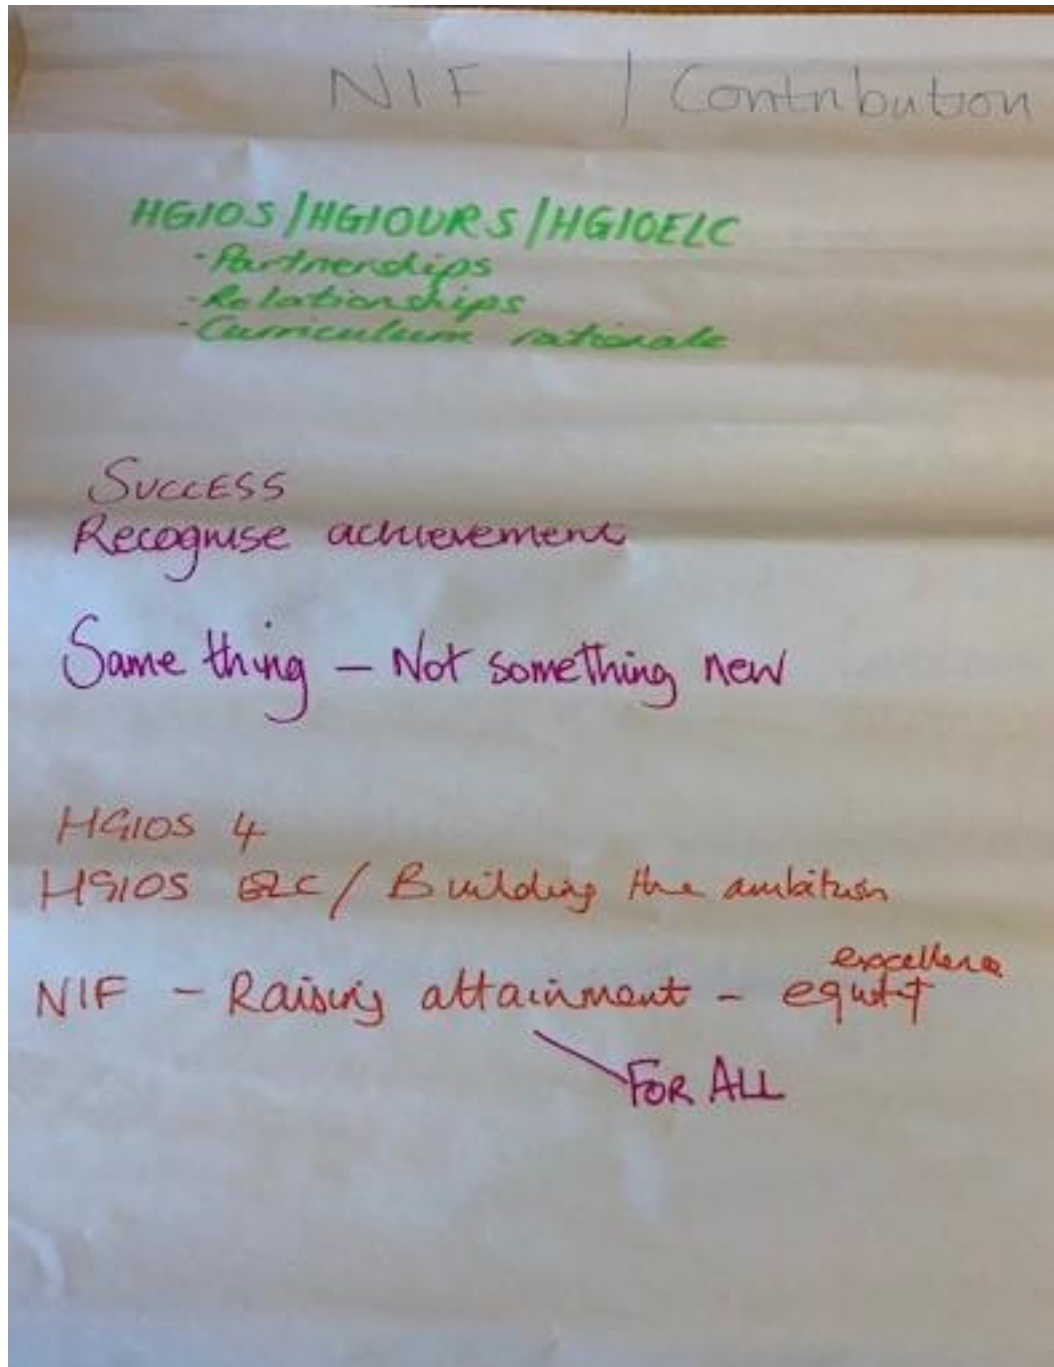 NIF / Contribution
HGIOS/HGIOURS/HGIOELC
· Partnerships
· Relationships
· Curriculum rationale
SUCCESS
Recognise achievement
Same thing – Not something new
HGIOS 4
HGIOS ELC / Building the ambition
excellence
NIF – Raising attainment – equity
FOR ALL